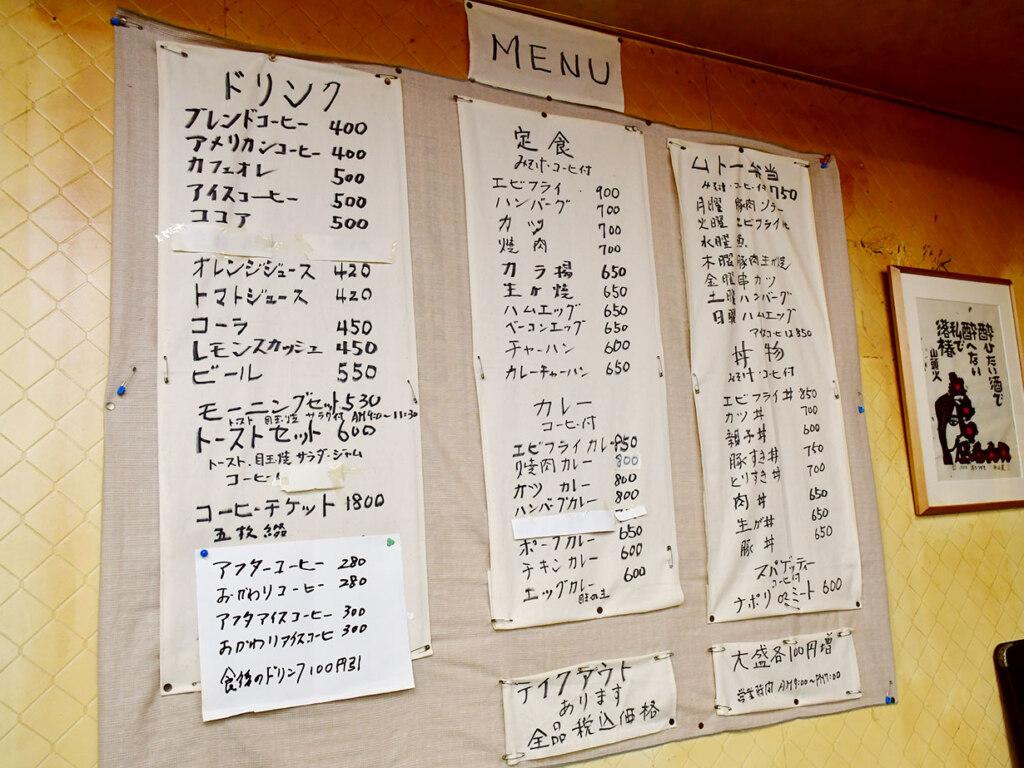 MENU
ドリンク
ブレンドコーヒー 400
アメリカンコーヒー 400
カフェオレ 500
アイスコーヒー 500
ココア 500
オレンジジュース 420
トマトジュース 420
コーラ 450
レモンスカッシュ 450
ビール 550
モーニングセット 530
トースト 目玉焼 サラダ付 AM9:00~11:30
トーストセット 600
トースト.目玉焼 サラダ・ジャム
コーヒー
コーヒーチケット 1800
五枚綴
アフターコーヒー 280
おかわりコーヒー 280
アフタアイスコーヒー 300
おかわりアイスコーヒ 300
食後のドリンク100円引
定食
みそ汁・コーヒ付
エビフライ 900
ハンバーグ 700
カツ 700
焼肉 700
カラ揚 650
生が焼 650
ハムエッグ 650
ベーコンエッグ 650
チャーハン 600
カレーチャーハン 650
カレー
コーヒ付
エビフライカレー 850
焼肉カレー 800
カツカレー 800
ハンバーグカレー 800
ポークカレー 650
チキンカレー 600
エッグカレー 600
テイクアウト
あります
全品税込価格
ムトー弁当
みそ汁・コーヒ付 750
月曜 豚肉ソテー
火曜 エビフライ
水曜 魚
木曜 豚肉生が焼
金曜 串カツ
土曜 ハンバーグ
日曜 ハムエッグ
丼物
みそ汁・コーヒ付
エビフライ丼 850
カツ丼 700
親子丼 600
豚すき丼 750
とりすき丼 700
肉丼 650
生が丼 650
豚丼 650
スパゲッティー
コーヒ付
ナポリ or ミート 600
大盛各100円増
営業時間 AM9:00~PM7:00
酔ひたい酒で
酔へない
私で
落椿
山頭火